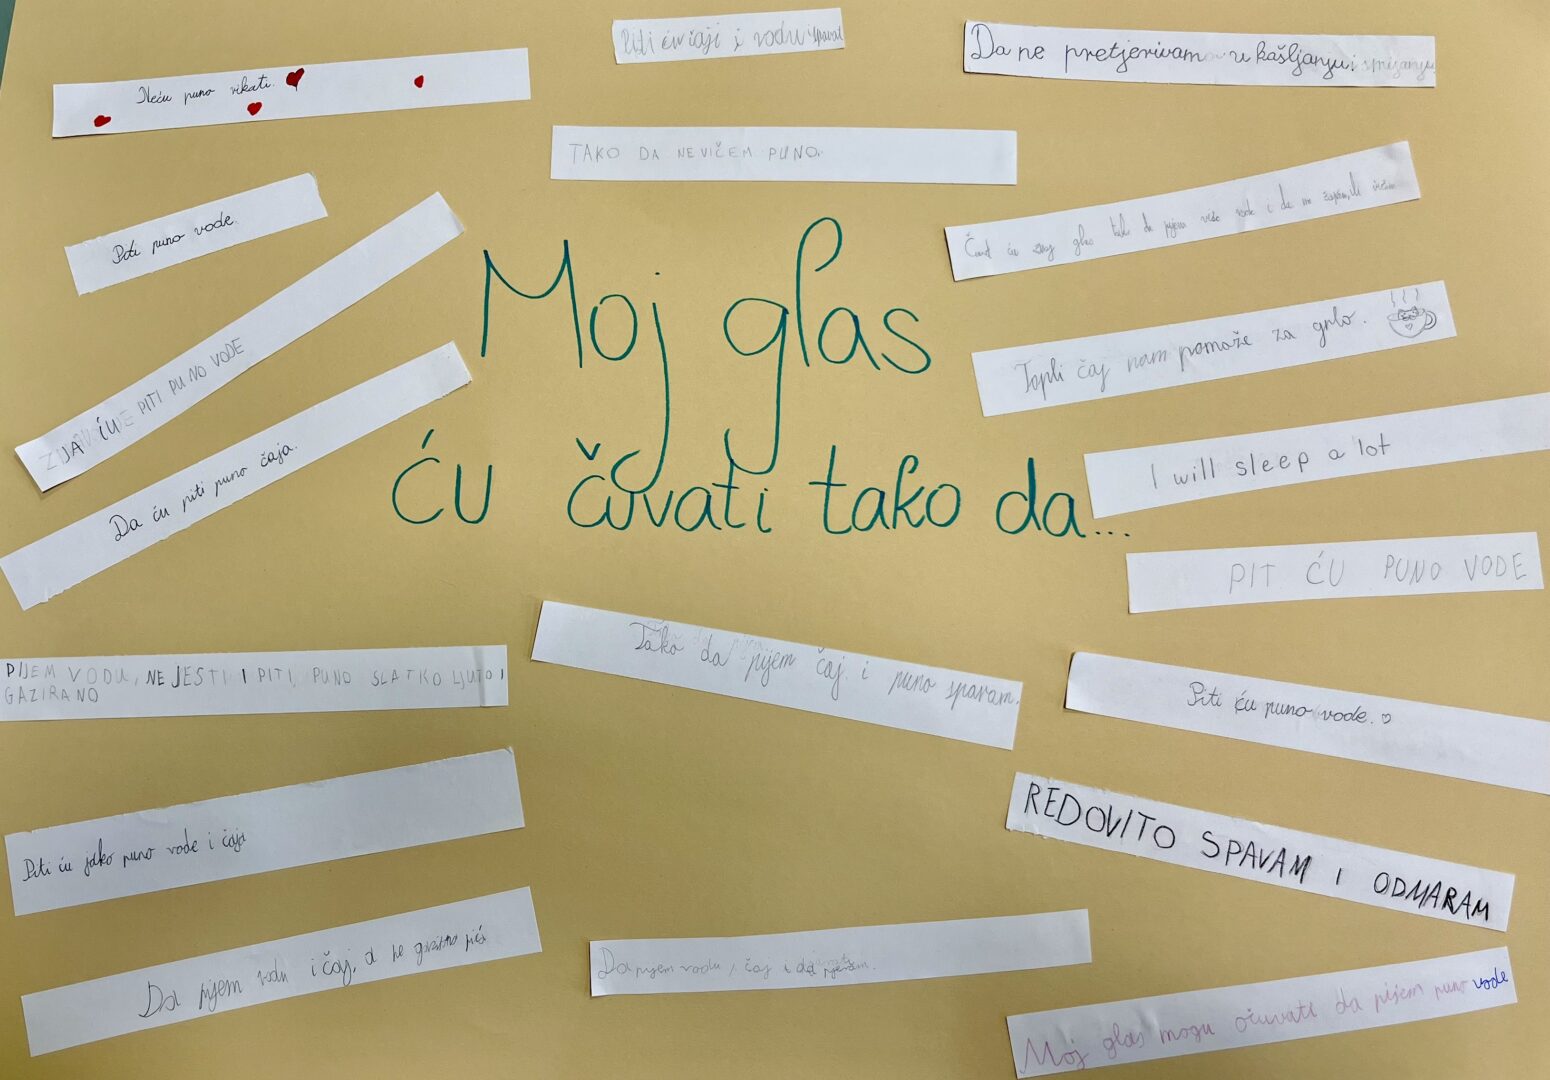 Neću puno vikati.
Piti ću čaji i vodu i spavat
Da ne pretjerivam u kašljanju i
TAKO DA NEVIČEM PUNO.
Piti puno vode.
Čuvat ću svoj glas tako da pijem više vode i da ne
ĆU PITI PUNO VODE
Moj glas
ću čuvati tako da...
Topli čaj nam pomaže za grlo.
Da ću piti puno čaja.
I will sleep a lot
PIT ĆU PUNO VODE
PIJEM VODU, NE JESTI I PITI PUNO SLATKO LJUTO I
GAZIRANO
Tako da pijem čaj i puno spavam.
Piti ću puno vode.
Piti ću jako puno vode i čaja
REDOVITO SPAVAM I ODMARAM
Da pijem vodu i čaj, a ne gazirana pića
Da pijem vodu, čaj i da
Moj glas mogu očuvati da pijem puno vode